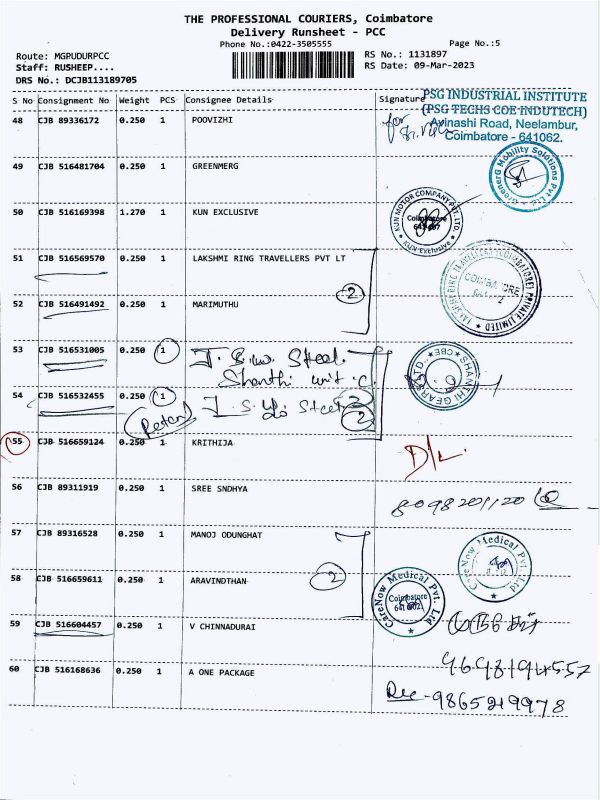 THE PROFESSIONAL COURIERS, Coimbatore
Delivery Runsheet - PCC
Phone No.:0422-3505555 Page No.:5
Route: MGPUDURPCC RS No.: 1131897
Staff: RUSHEEP.... RS Date: 09-Mar-2023
DRS No.: DCJB113189705
S No Consignment No Weight PCS Consignee Details Signature
PSG INDUSTRIAL INSTITUTE
(PSG TECHS COE INDUTECH)
Avinashi Road, Neelambur,
Coimbatore - 641062.
48 CJB 89336172 0.250 1 POOVIZHI for
49 CJB 516481704 0.250 1 GREENMERG
GreenerG Mobility Solutions Pvt Ltd
50 CJB 516169398 1.270 1 KUN EXCLUSIVE
KUN MOTOR COMPANY PVT. LTD.
Coimbatore
KUN Exclusive
51 CJB 516569570 0.250 1 LAKSHMI RING TRAVELLERS PVT LT
LAKSHMI RING TRAVELLERS (COIMBATORE) PRIVATE LIMITED
COIMBATORE
2
52 CJB 516491492 0.250 1 MARIMUTHU
53 CJB 516531005 0.250 1 Steel.
Shanthi unit.
SHANTHI GEARS LTD., CBE
54 CJB 516532455 0.250 1 Steel
2
55 CJB 516659124 0.250 1 KRITHIJA D/L.
56 CJB 89311919 0.250 1 SREE SNDHYA
8098201120
57 CJB 89316528 0.250 1 MANOJ ODUNGHAT
CareNow Medical Pvt. Ltd
2
58 CJB 516659611 0.250 1 ARAVINDTHAN
CareNow Medical Pvt. Ltd
Coimbatore
59 CJB 516604457 0.250 1 V CHINNADURAI
9698194557
60 CJB 516168636 0.250 1 A ONE PACKAGE
Rec - 9865219978